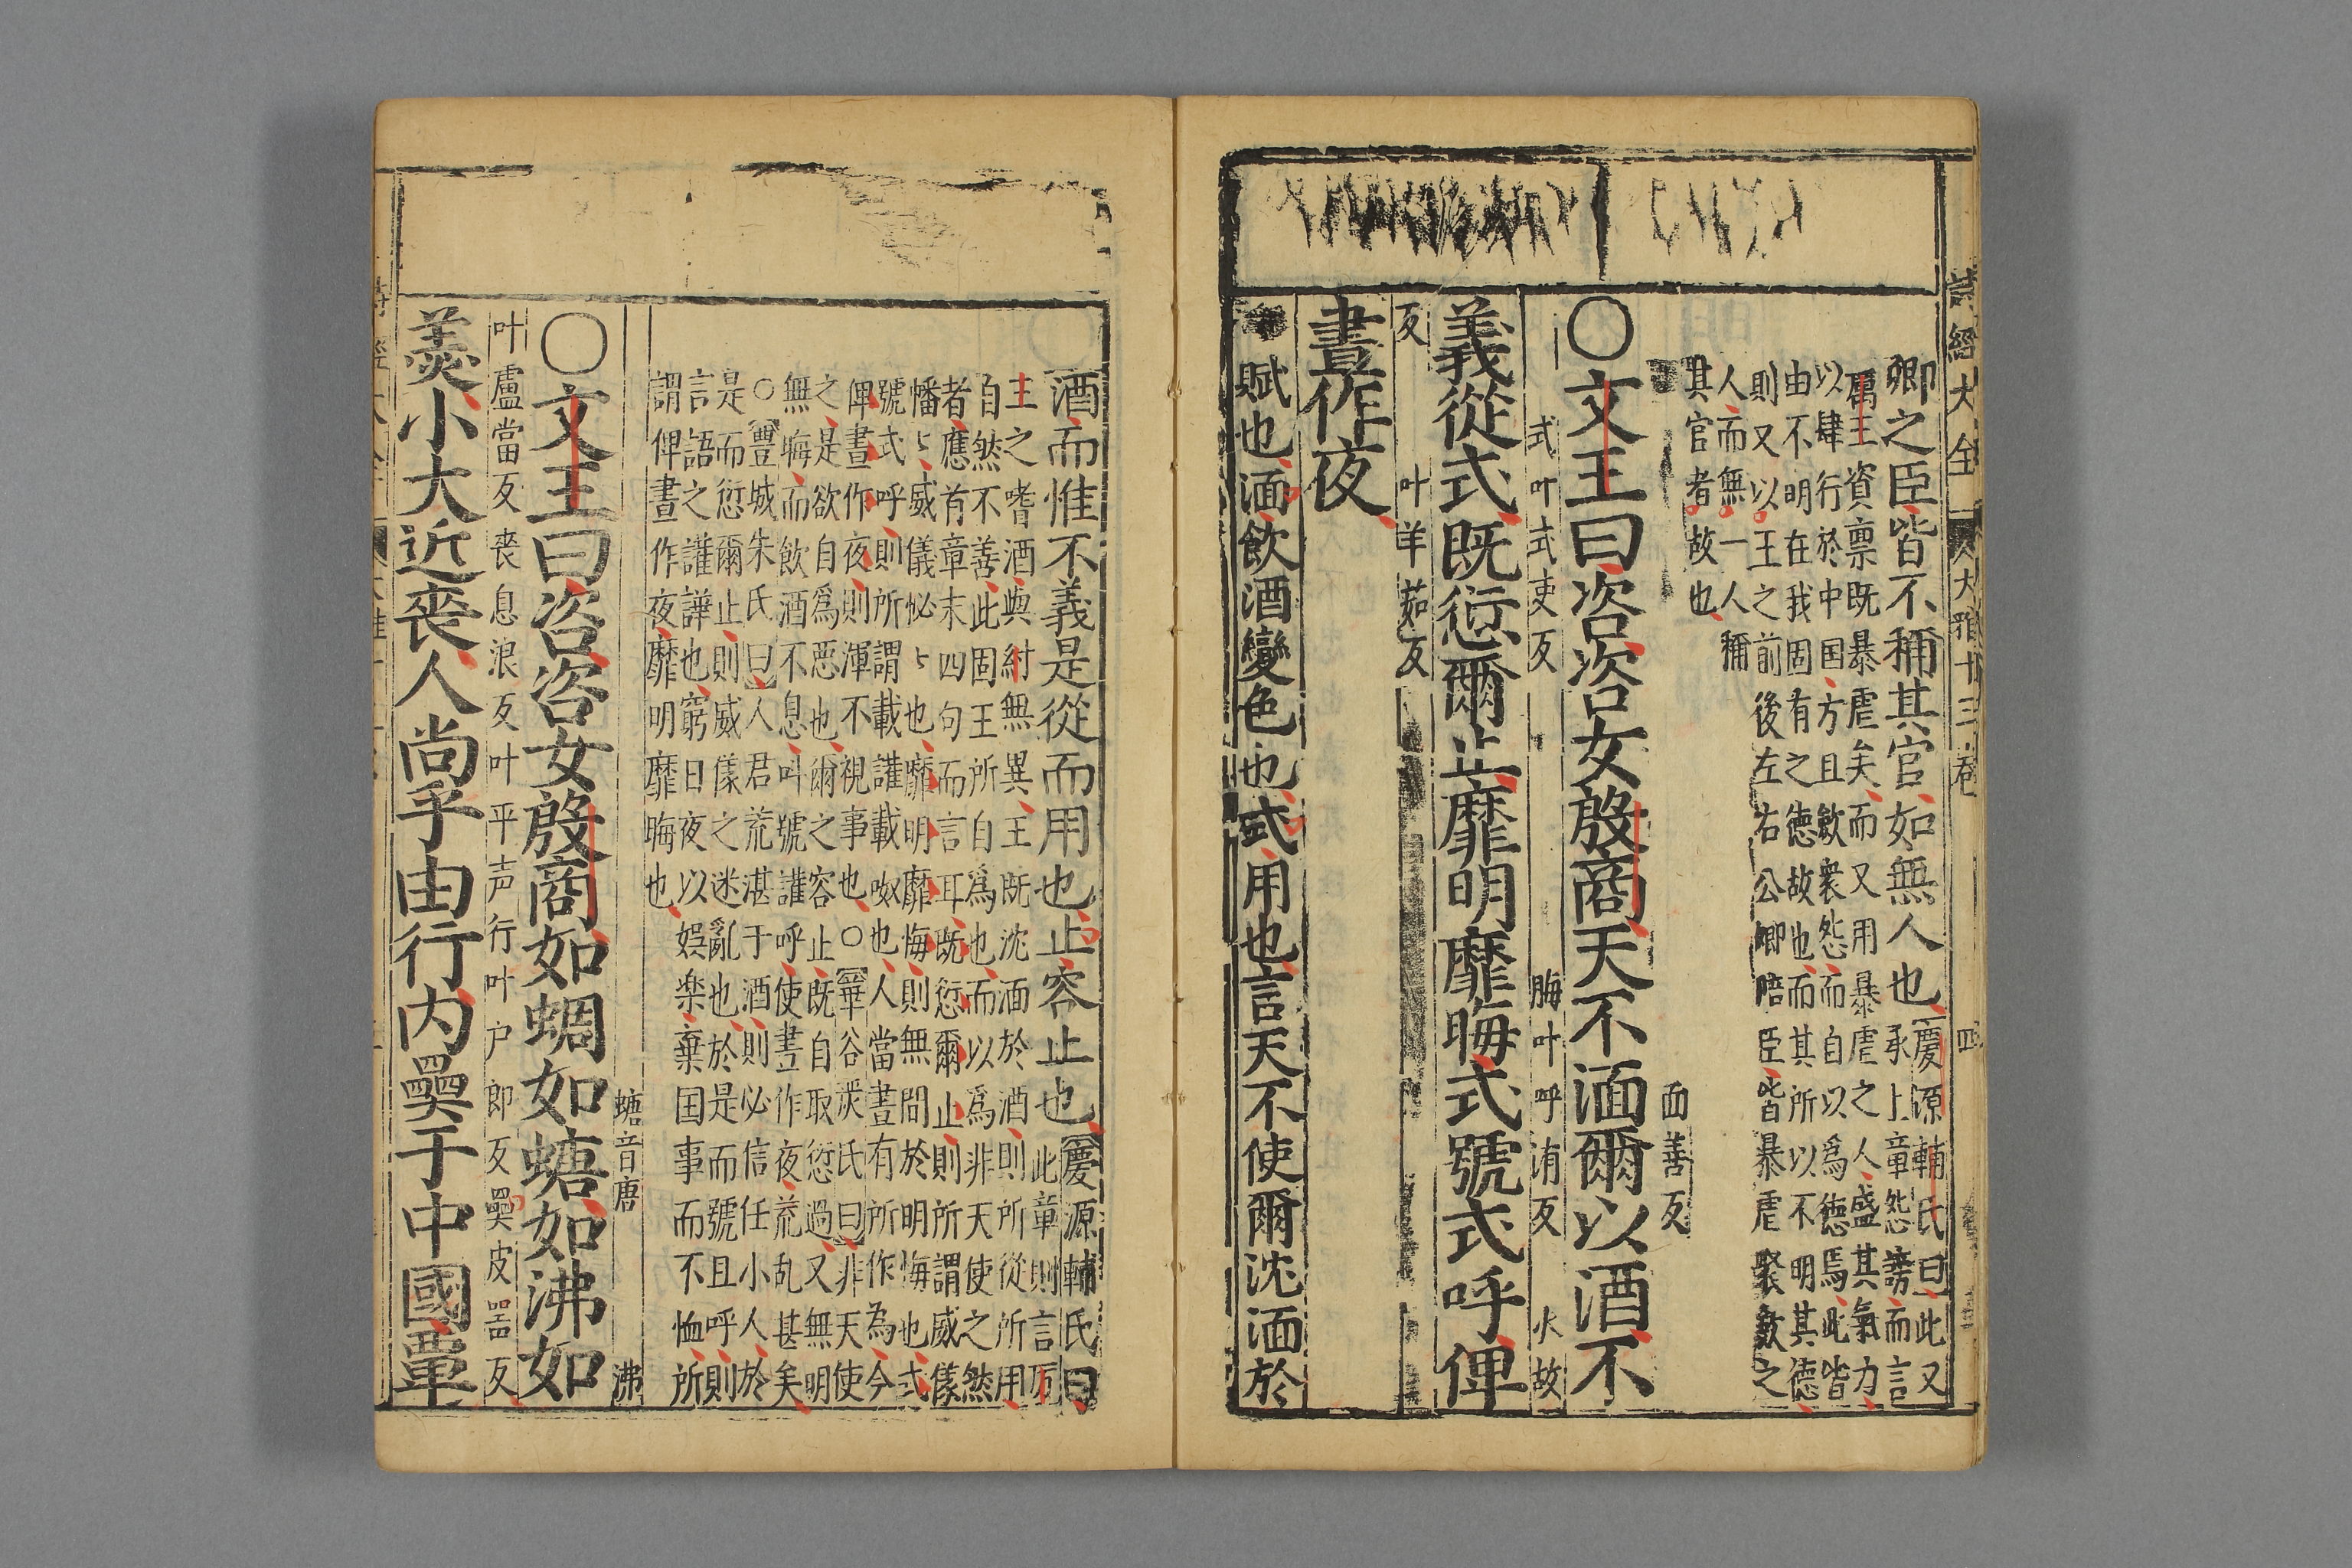 詩經大全 大雅十三卷 四
卿之臣皆不稱其官如無人也
慶源輔氏曰此又
承上章怨謗而言
厲王資禀既暴虐矣而又用暴虐之人盛其氣力
以肆行於中国方且歛衆怨而自以爲徳焉此皆
由不明在我固有之徳故也而其所以不明其徳
則又以王之前後左右公卿陪臣皆暴虐聚歛之
人而無一人稱
其官者故也
面善反
○文王曰咨咨女殷商天不湎爾以酒不
式叶式吏反 晦叶呼洧反 火故
義從式既愆爾止靡明靡晦式號式呼俾
反 叶羊茹反
晝作夜
賦也湎飲酒變色也式用也言天不使爾沈湎於
酒而惟不義是從而用也止容止也
慶源輔氏曰
此章則言厉
王之嗜酒與紂無異王既沈湎於酒則所從所用
自然不善此固王所自爲也而以爲非天使之然
者應首章末四句而言耳既愆爾止則所謂威儀
幡幡威儀怭怭也靡明靡晦則無問於明晦也式
號式呼則所謂載號載呶也人當晝有所作為今
俾晝作夜則渾不視事也○華谷嚴氏曰非天使
之是欲自爲惡也爾之容止既自取愆過又無明
無晦而飲酒不息叫號讙呼使晝作夜荒乱甚矣
○豐城朱氏曰人君荒湛于酒則必信任小人於
是而愆爾止則威儀之迷亂也於是而號且呼則
言語之讙譁也窮日夜以娯楽棄国事而不恤所
謂俾晝作夜靡明靡晦也
螗音唐 沸
○文王曰咨咨女殷商如蜩如螗如沸如
叶盧當反喪息浪反叶平声行叶户郎反奰皮器反
羹小大近喪人尚乎由行内奰于中國覃